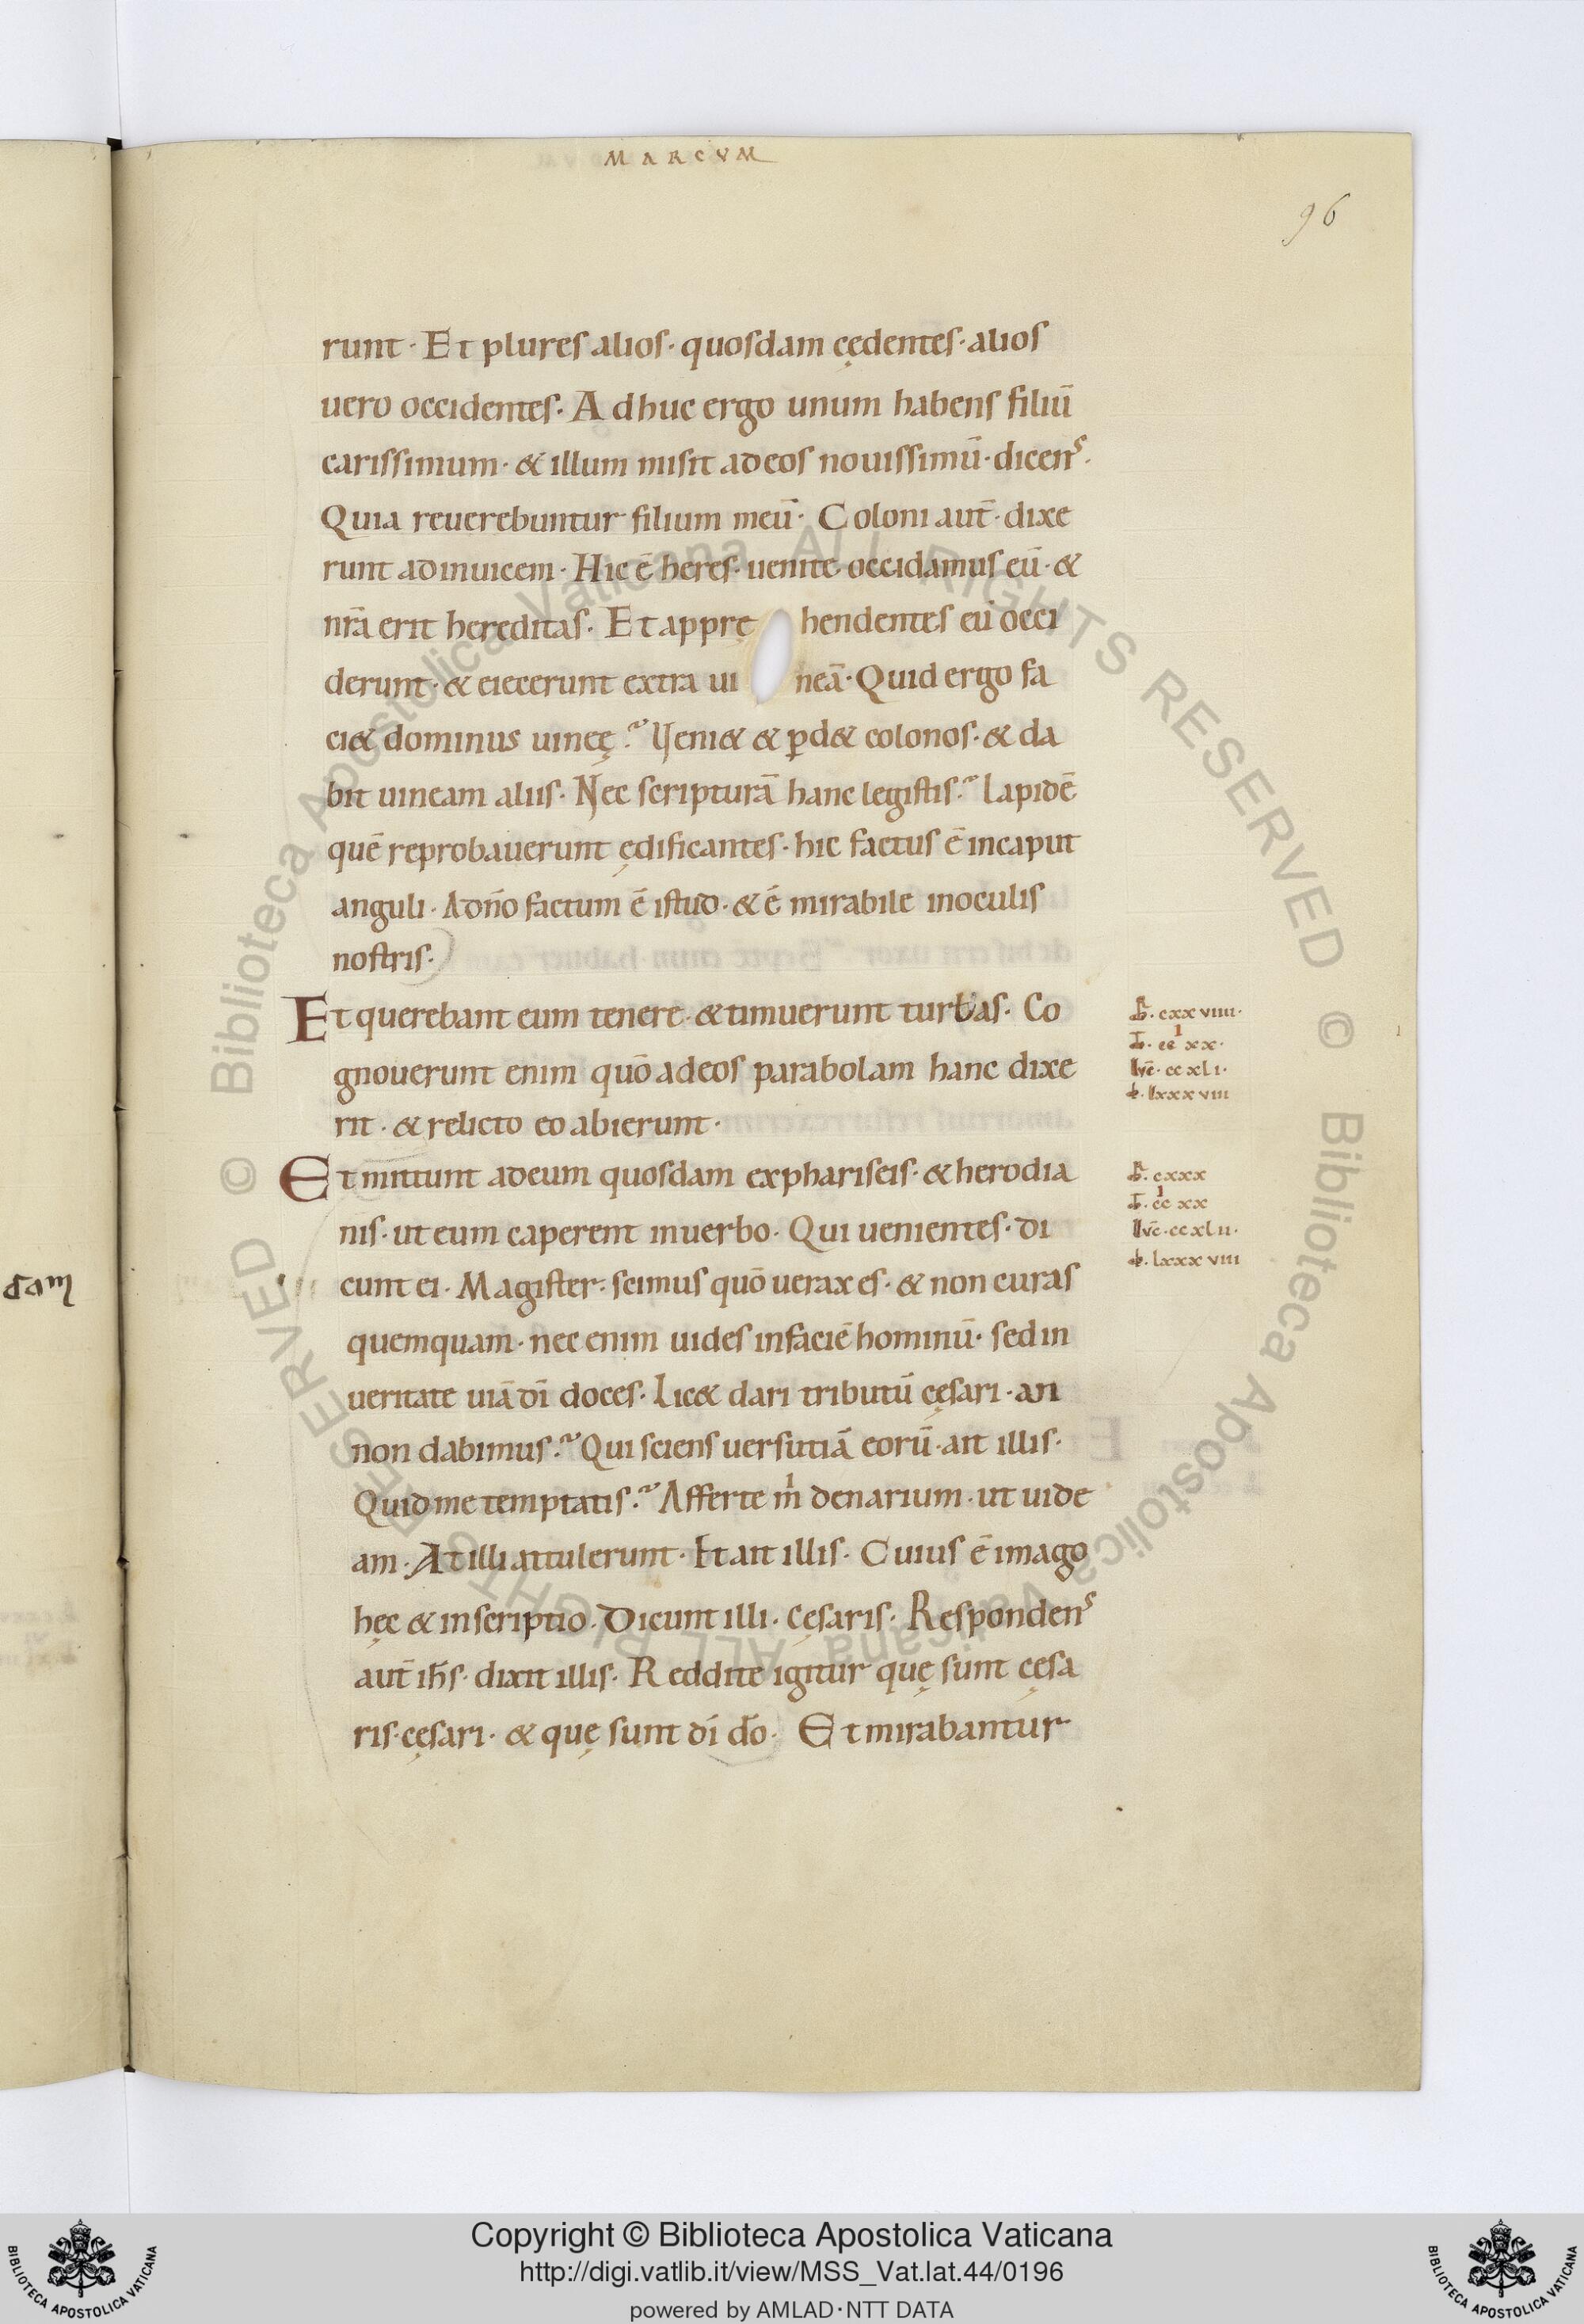 MARCVM
96
runt· Et plures alios· quosdam cędentes· alios
uero occidentes· Adhuc ergo unum habens filiū
carissimum· & illum misit ad eos nouissimū· dicens·
Quia reuerebuntur filium meū· Coloni aut̄· dixe
runt ad inuicem· Hic ē heres· uenite occidamus eū· &
nr̄a erit hereditas· Et apprę hendentes eū occi
derunt· & eiecerunt extra ui neā· Quid ergo fa
ci& dominus uineę? Ueni& & ꝑd& colonos· & da
bit uineam aliis· Nec scripturā hanc legistis? Lapidē
quē reprobauerunt ędificantes· hic factus ē in caput
anguli· A dn̄o factum ē istud· & ē mirabile in oculis
nostris·
Et querebant eum tenere· & timuerunt turbas· Co
gnouerunt enim quō ad eos parabolam hanc dixe
rit· & relicto eo abierunt·
cxxviiii·
cc xx·
ccxli·
lxxxviii
Et mittunt ad eum quosdam ex phariseis· & herodia
nis· ut eum caperent in uerbo· Qui uenientes· di
cunt ei· Magister· scimus quō uerax es· & non curas
quemquam· nec enim uides in faciē hominū· sed in
ueritate uiā dī doces· Lic& dari tributū cęsari· an
non dabimus? Qui sciens uersutiā eorū· ait illis·
Quid me temptatis? Afferte m̍ denarium· ut uide
am· At illi attulerunt· Et ait illis· Cuius ē imago
hęc & inscriptio· Dicunt illi· Cęsaris· Respondens
aut̄ ih̄s· dixit illis· Reddite igitur quę sunt cęsa
ris· cęsari· & quę sunt dī dō· Et mirabantur
cxxx
cc xx
ccxlii·
lxxxviii
dam
Copyright © Biblioteca Apostolica Vaticana
http://digi.vatlib.it/view/MSS_Vat.lat.44/0196
powered by AMLAD·NTT DATA
BIBLIOTECA APOSTOLICA VATICANA
BIBLIOTECA APOSTOLICA VATICANA
© Biblioteca Apostolica Vaticana ALL RIGHTS RESERVED
© Biblioteca Apostolica Vaticana ALL RIGHTS RESERVED